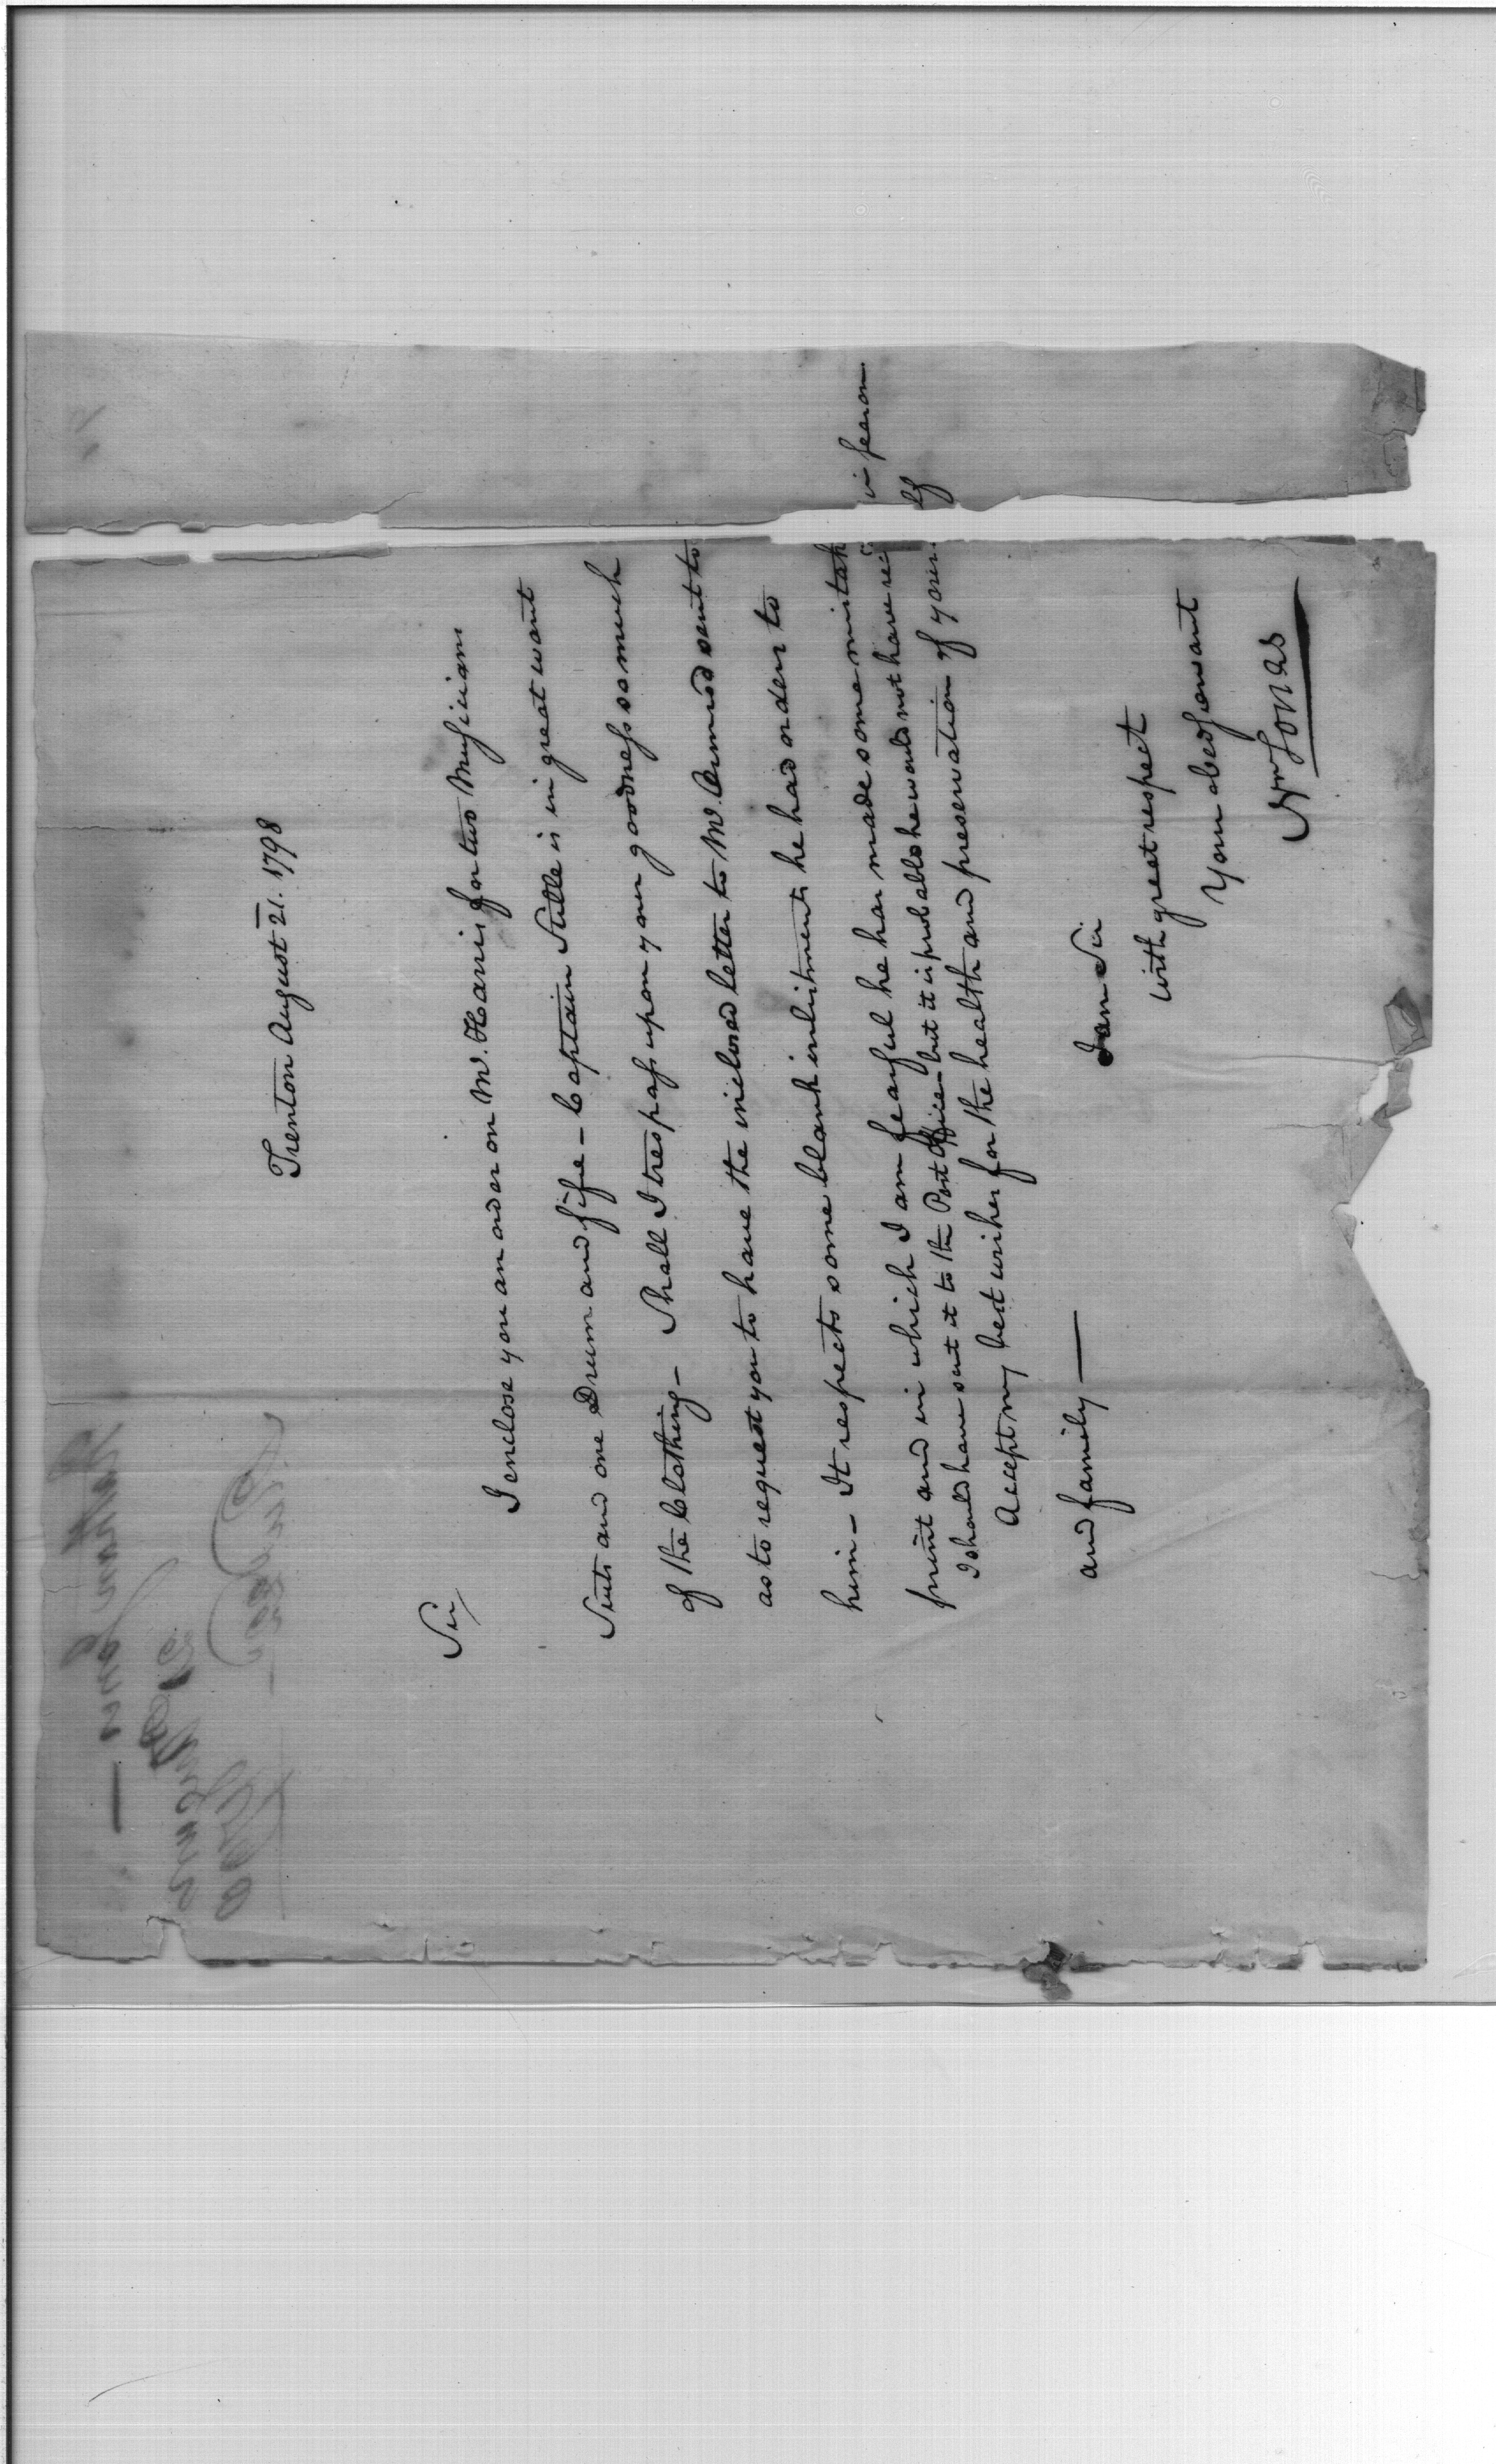 Trenton August 21. 1798
Sir/
I enclose you an order on Mr. Harris for two Musicians
Suits and one Drum and fife – Captain Stille is in great want
of the Clothing – Shall I trespass upon your goodness so much
as to request you to have the inclosed letter to Mr. Ormrod sent to
him – It respects some blank inlistments he had orders to
print and in which I am fearful he has made some mistak
I should have sent it to the Post Office – but it is probable he would not have recd in season
Accept my best wishes for the health and preservation of yourself
and family —
I am Sir
with great respect
Your obed servant
Wm Jonas